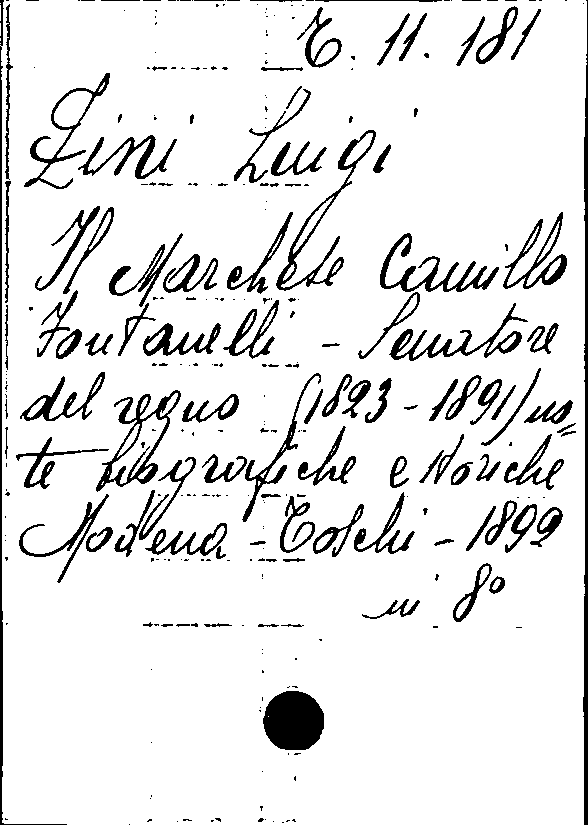 T. 11. 181
Zini Luigi
Il Marchese Camillo
Fontanelli - Senatore
del regno (1823-1891) no=
te biografiche e storiche
Modena - Toschi - 1899
in 8º